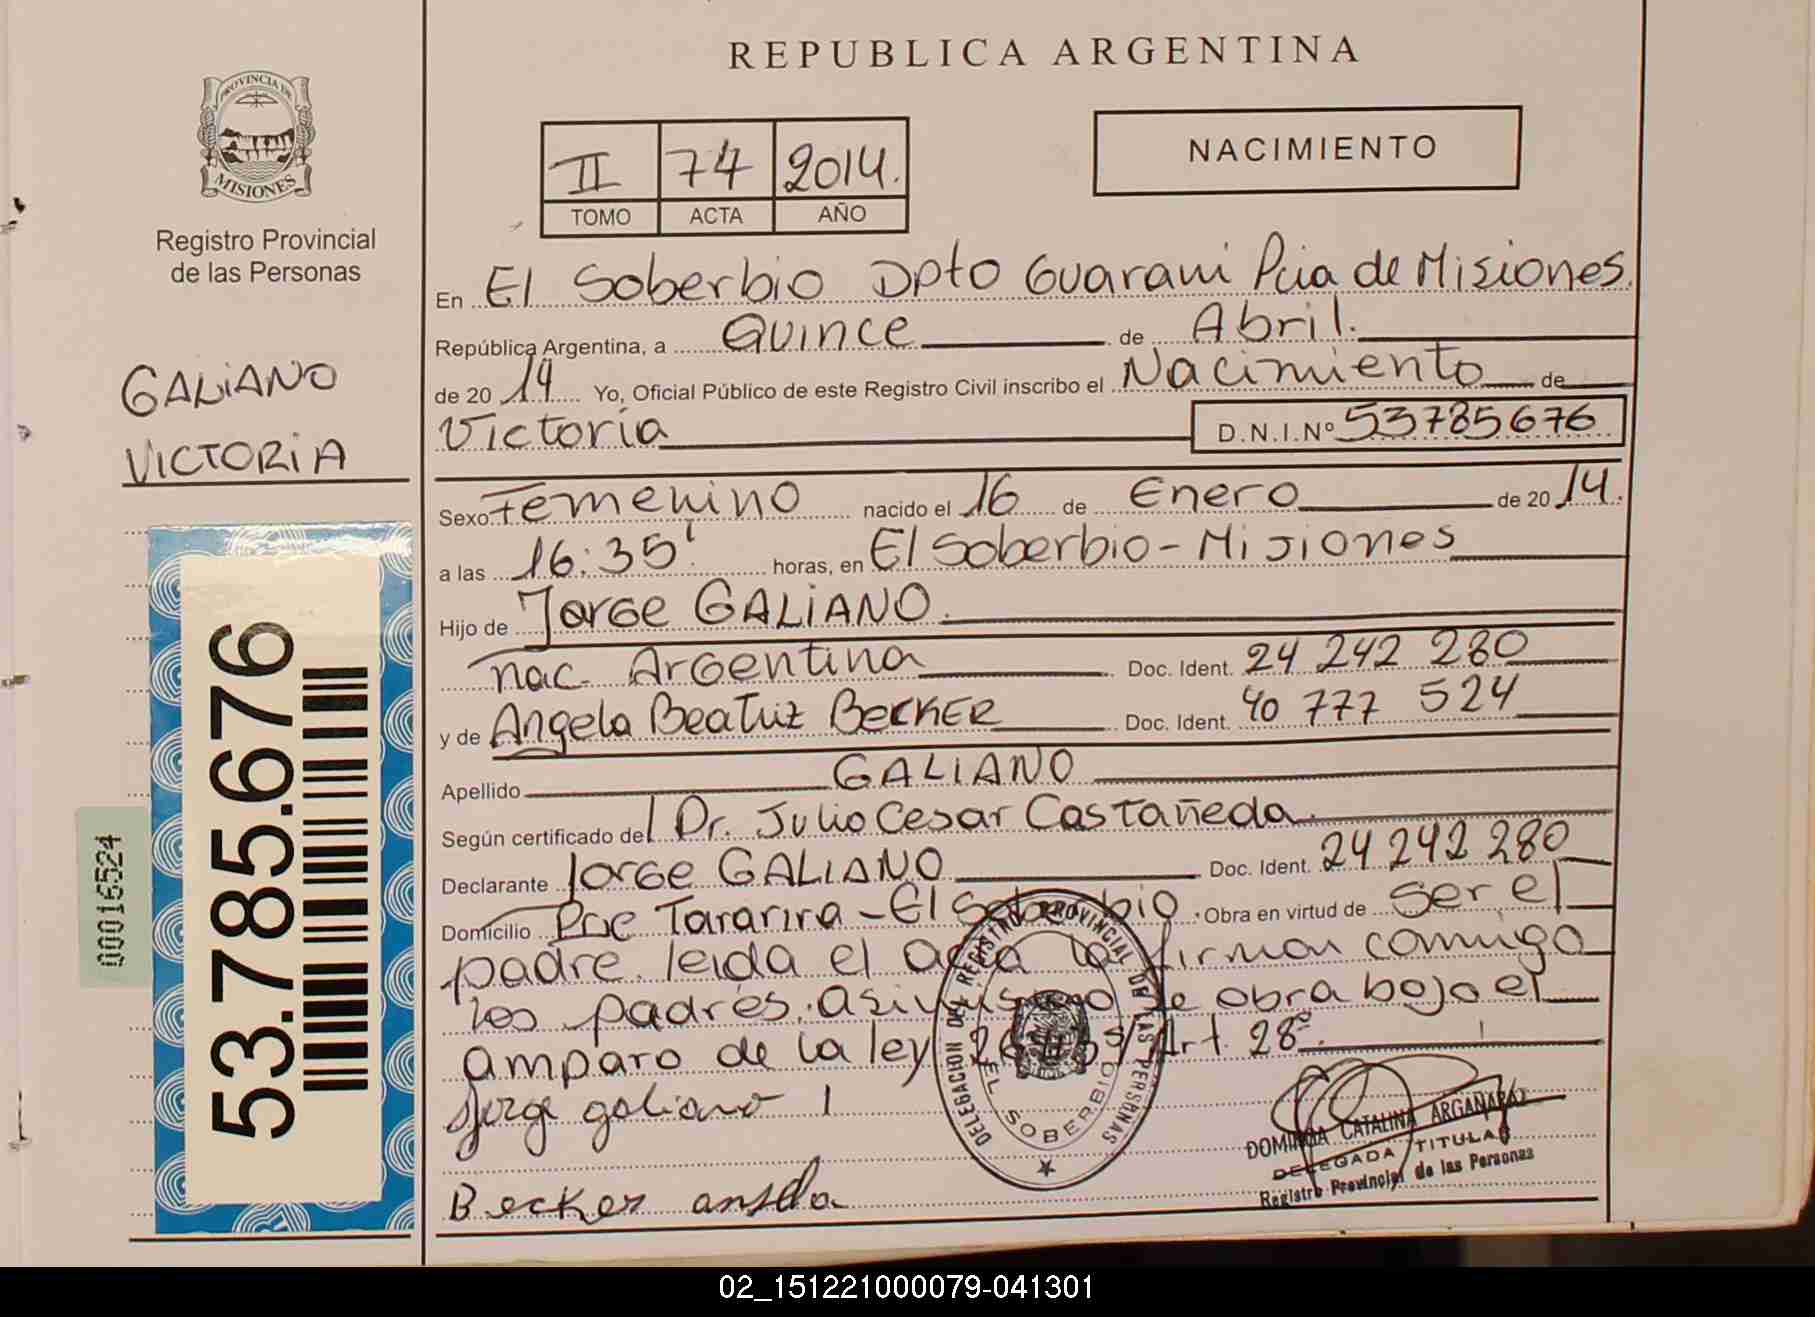 REPUBLICA ARGENTINA
PROVINCIA DE
MISIONES
Registro Provincial
de las Personas
II 74 2014.
TOMO ACTA AÑO
NACIMIENTO
GALiANO
VICTORiA
53.785.676
00016524
En El Soberbio Dpto Guarani Pcia de Misiones.
República Argentina, a Quince de Abril.
de 20 14 Yo, Oficial Público de este Registro Civil inscribo el Nacimiento de
Victoria D.N.I.Nº 53785676
Sexo Femenino nacido el 16 de Enero de 20 14.
a las 16:35' horas, en El Soberbio - Misiones
Hijo de Jorge GALiANO.
nac. Argentina Doc. Ident. 24 242 280
y de Angela Beatriz BECKER Doc. Ident. 40 777 524
Apellido GALIANO
Según certificado del Dr. Julio Cesar Castañeda.
Declarante Jorge GALIANO Doc. Ident. 24 242 280
Domicilio Pje Tararira - El Soberbio Obra en virtud de ser el
padre. leida el acta la firman conmigo
los padres. asi mismo se obra bajo el
amparo de la ley Art. 28º.
Jorge galiano
Becker
DELEGACION DEL REGISTRO PROVINCIAL DE LAS PERSONAS
EL SOBERBIO
CATALINA
DELEGADA TITULAR
Registro Provincial de las Personas
02_151221000079-041301